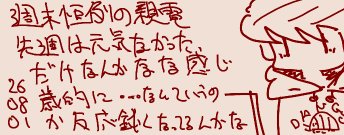 週末恒例の親電
先週は元気なかった、
だけなんかなな感じ
歳的に…なんていうの
か反応鈍くなってるんかな
26
08
01